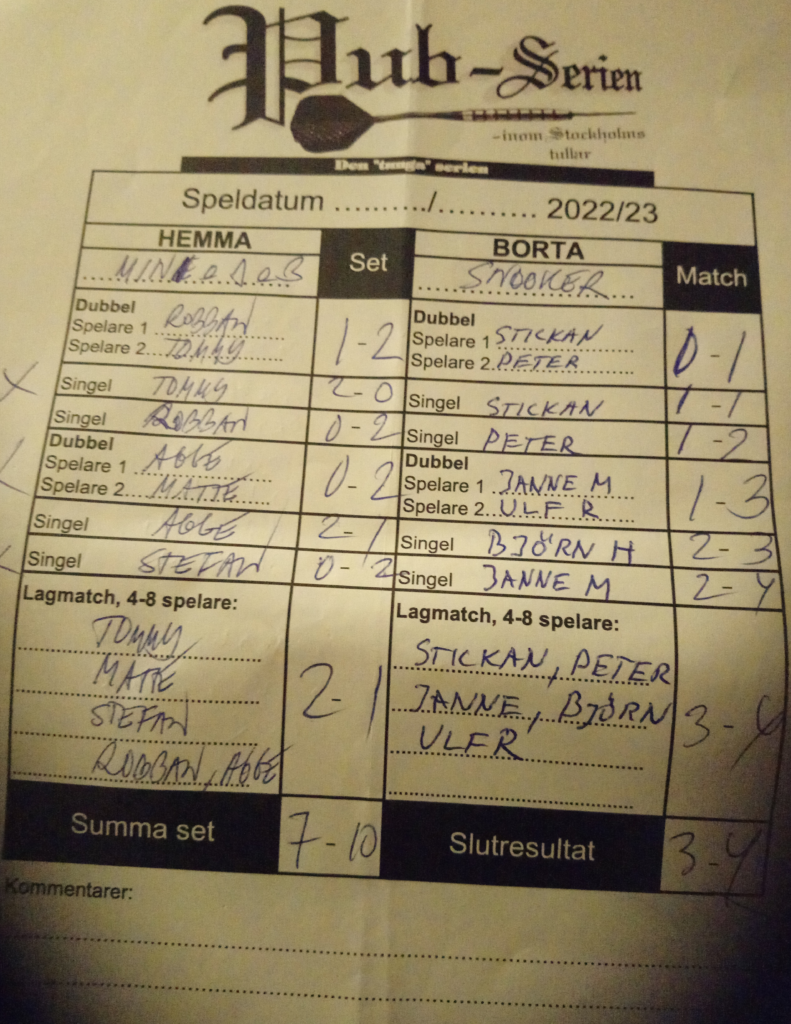 Pub-Serien
-inom Stockholms
tullar
Den "tunga" serien
Speldatum ........../.......... 2022/23
HEMMA Set BORTA Match
SNOOKER
Dubbel
Spelare 1 ROBBAN
Spelare 2 TOMMY
1-2
Dubbel
Spelare 1 STICKAN
Spelare 2 PETER
0-1
X Singel TOMMY 2-0 Singel STICKAN 1-1
Singel ROBBAN 0-2 Singel PETER 1-2
Dubbel
Spelare 1 AGGE
Spelare 2 MATTE
0-2
Dubbel
Spelare 1 JANNE M
Spelare 2 ULF R
1-3
Singel AGGE 2-1 Singel BJÖRN H 2-3
Singel STEFAN 0-2 Singel JANNE M 2-4
Lagmatch, 4-8 spelare:
TOMMY
MATTE
STEFAN
ROBBAN, AGGE
2-1
Lagmatch, 4-8 spelare:
STICKAN, PETER
JANNE, BJÖRN
ULF R
3-4
Summa set 7-10 Slutresultat 3-4
Kommentarer: